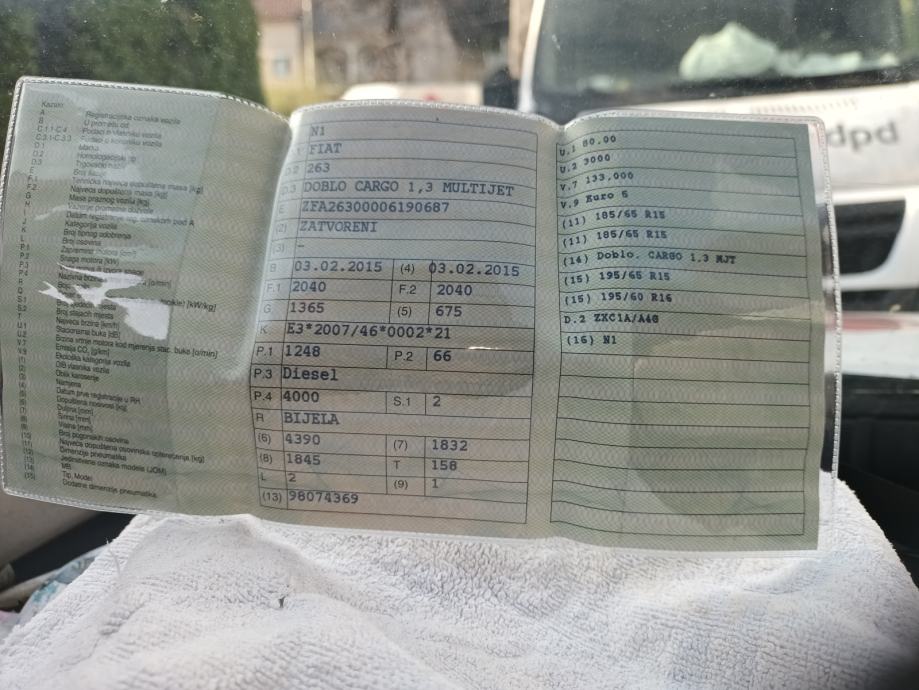 Kazalo:
A Registracijska oznaka vozila
B U prometu od
C.1.1-C.4 Podaci o vlasniku vozila
C.3.1-C.3.3 Podaci o korisniku vozila
D.1 Marka
D.2 Homologacijski tip
D.3 Trgovački naziv
E Broj šasije
F.1 Tehnička najveća dopuštena masa [kg]
F.2 Najveća dopuštena masa [kg]
G Masa praznog vozila [kg]
H Važenje prometne dozvole
I Datum registracije
J Kategorija vozila
K Broj tipnog odobrenja
L Broj osovina
P.1 Zapremina motora
P.2 Snaga motora [kW]
P.3
P.4
R
Q [kW/kg]
S.1
S.2 Broj stajaćih mjesta
T Najveća brzina [km/h]
U.1 Stacionarna buka [dB]
U.2 Brzina vrtnje motora kod mjerenja stac. buke [o/min]
V.7 Emisija CO₂ [g/km]
V.9 Ekološka kategorija vozila
(1) OIB vlasnika vozila
(2) Oblik karoserije
(3) Namjena
(4) Datum prve registracije u RH
(5) Dopuštena nosivost [kg]
(6) Duljina [mm]
(7) Širina [mm]
(8) Visina [mm]
(9) Broj pogonskih osovina
(10) Najveća dopuštena osovinska opterećenja [kg]
(11) Dimenzije pneumatika
(13) Jedinstvena oznaka modela (JOM)
(14) Tip, Model
(15) Dodatne dimenzije pneumatika
N1
FIAT
D.2 263
D.3 DOBLO CARGO 1,3 MULTIJET
E ZFA26300006190687
(2) ZATVORENI
(3) –
B 03.02.2015 (4) 03.02.2015
F.1 2040 F.2 2040
G 1365 (5) 675
K E3*2007/46*0002*21
P.1 1248 P.2 66
P.3 Diesel
P.4 4000 S.1 2
R BIJELA
(6) 4390 (7) 1832
(8) 1845 T 158
L 2 (9) 1
(13) 98074369
U.1 80.00
U.2 3000
V.7 133,000
V.9 Euro 5
(11) 185/65 R15
(11) 185/65 R15
(14) Doblo. CARGO 1,3 MJT
(15) 195/65 R15
(15) 195/60 R16
D.2 ZXC1A/A4G
(16) N1
dpd